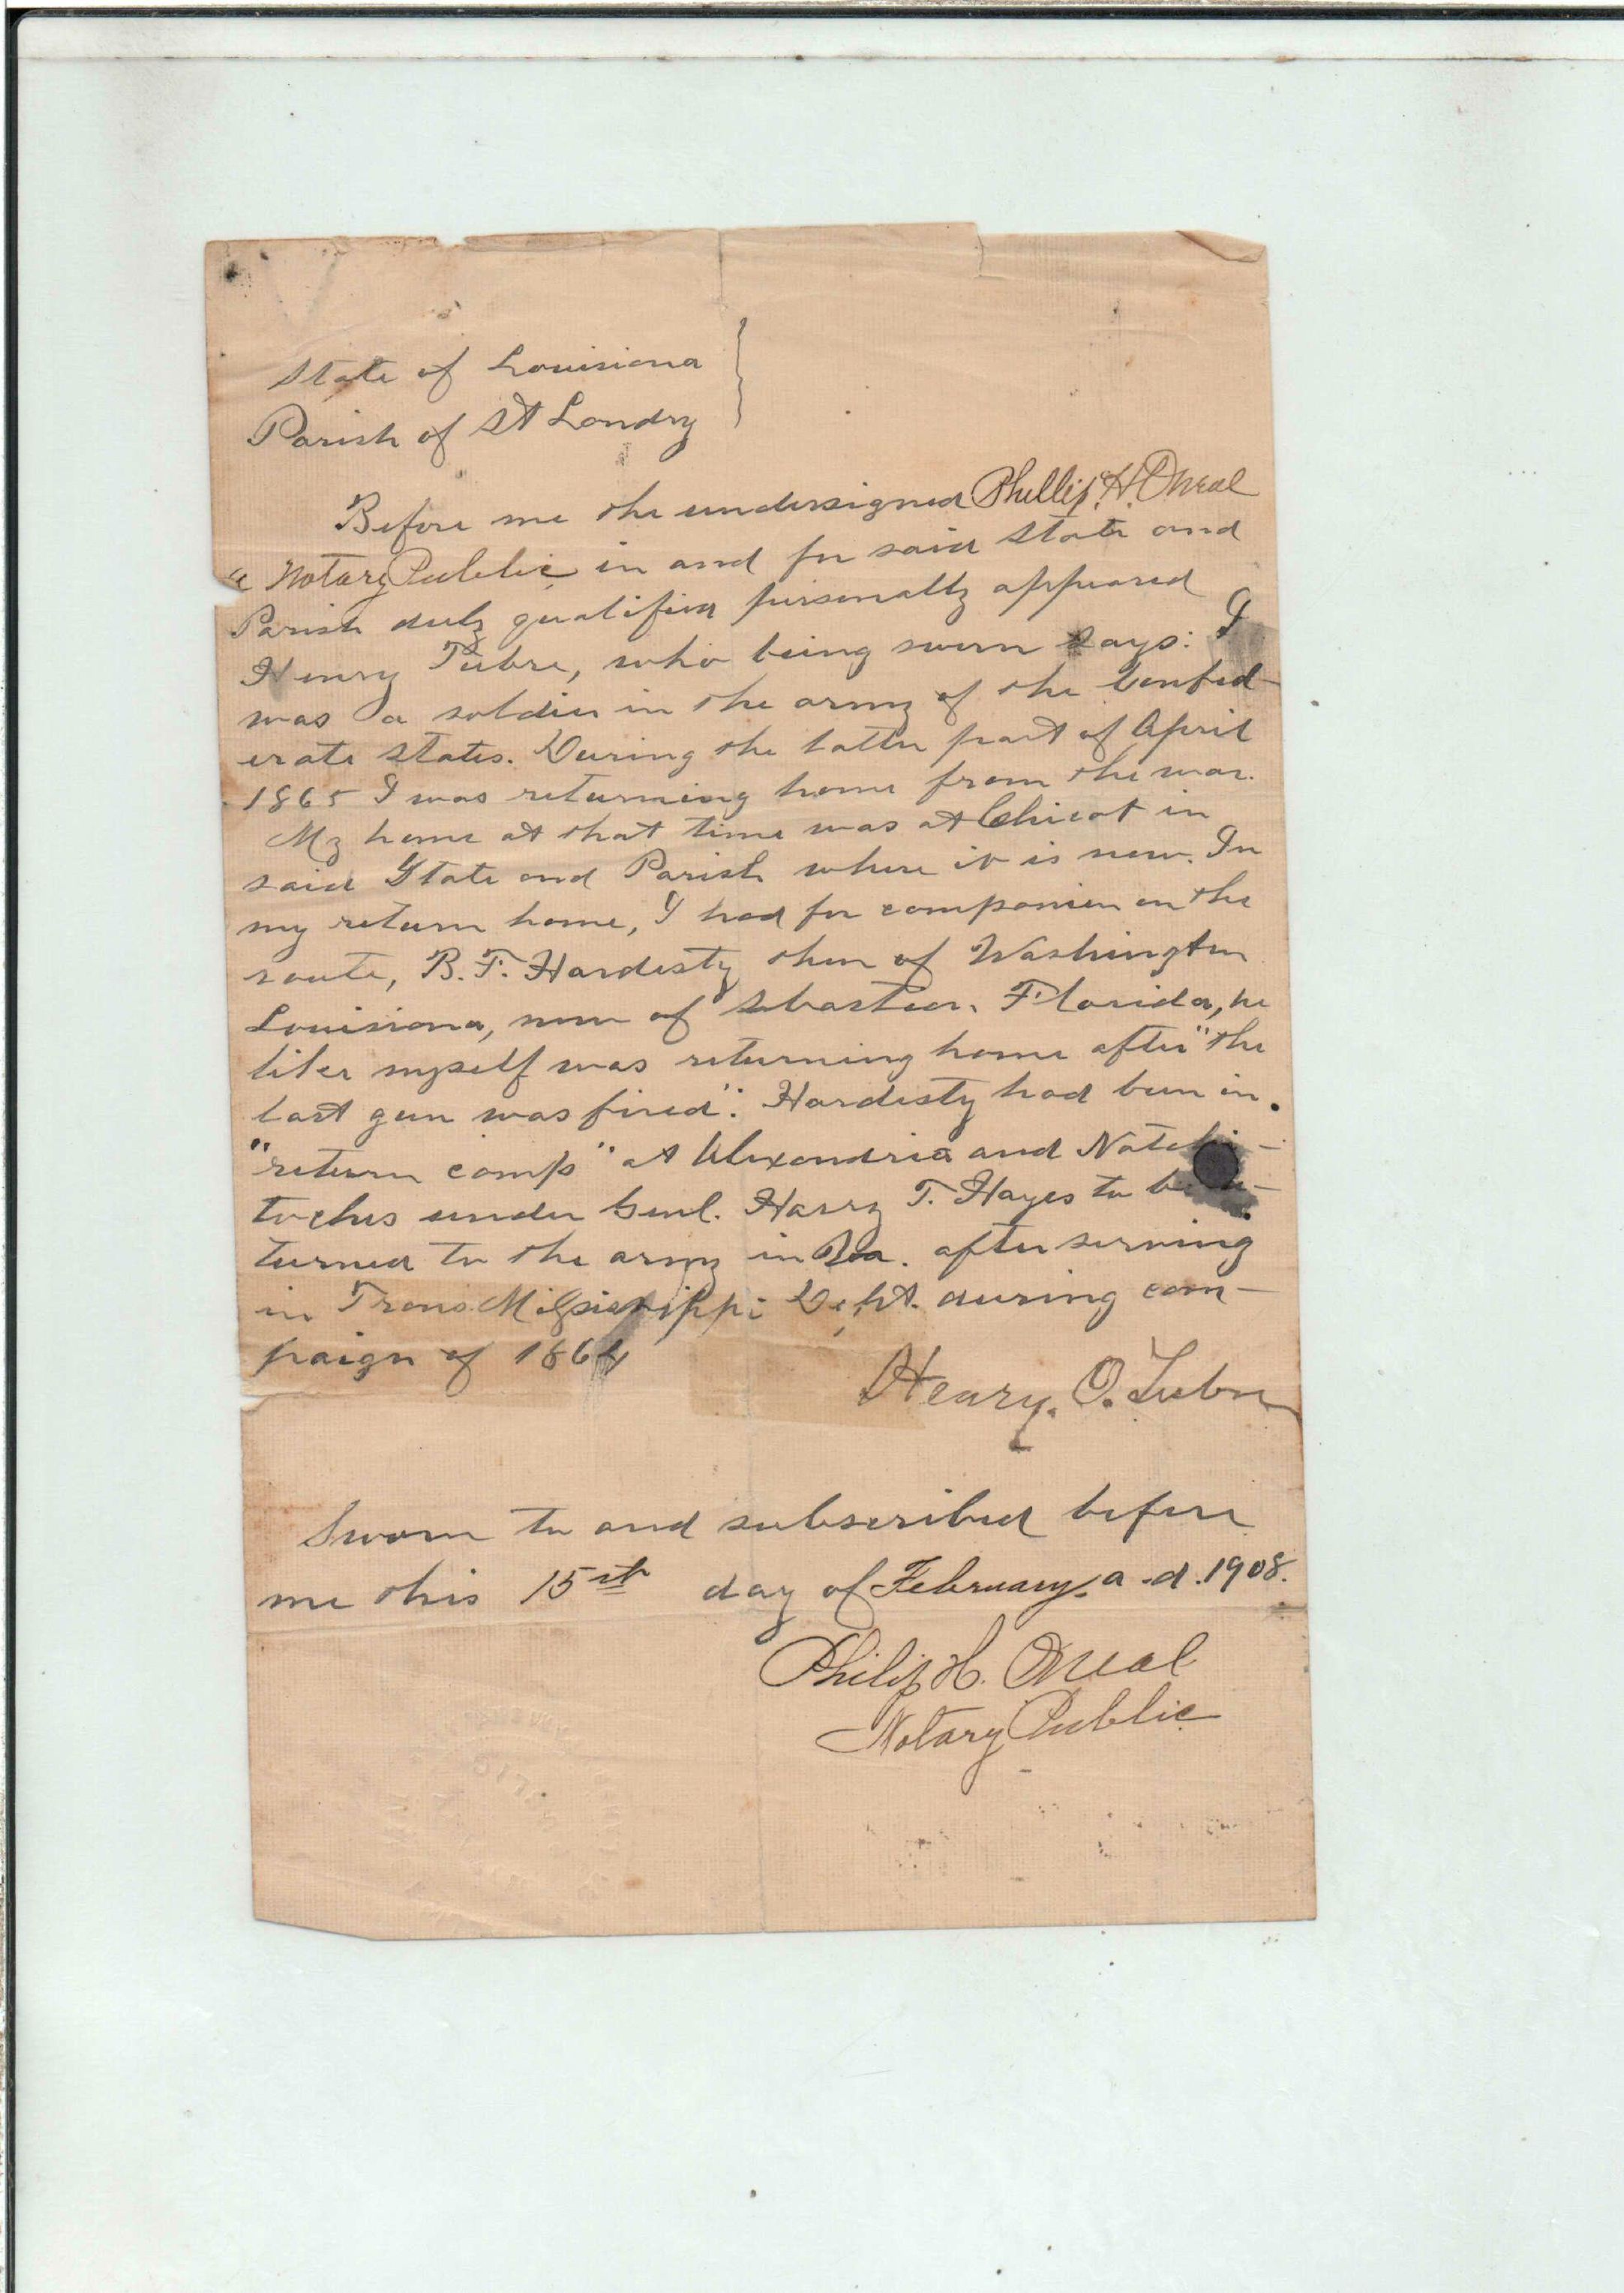 State of Louisiana
Parish of St Landry
Before me the undersigned Phillip. H. Oneal
a Notary Public in and for said State and
Parish duly qualified personally appeared
Henry Tubre, who being sworn says: I
was a soldier in the army of the Confed-
erate States. During the latter part of April
1865 I was returning home from the war.
My home at that time was at Chicot in
said State and Parish where it is now. In
my return home, I had for companion on the
route, B. F. Hardesty then of Washington
Louisiana, now of Sebastian, Florida, he
like myself was returning home after "the
last gun was fired". Hardesty had been in
"return camp" at Alexandria and Natchi-
toches under Genl. Harry T. Hayes to be
turned to the army in Va. after serving
in Trans. Mississippi Dept. during cam-
paign of 1864
Henry. O. Tubre
Sworn to and subscribed before
me this 15st day of February, a.d. 1908.
Philip H. Oneal
Notary Public